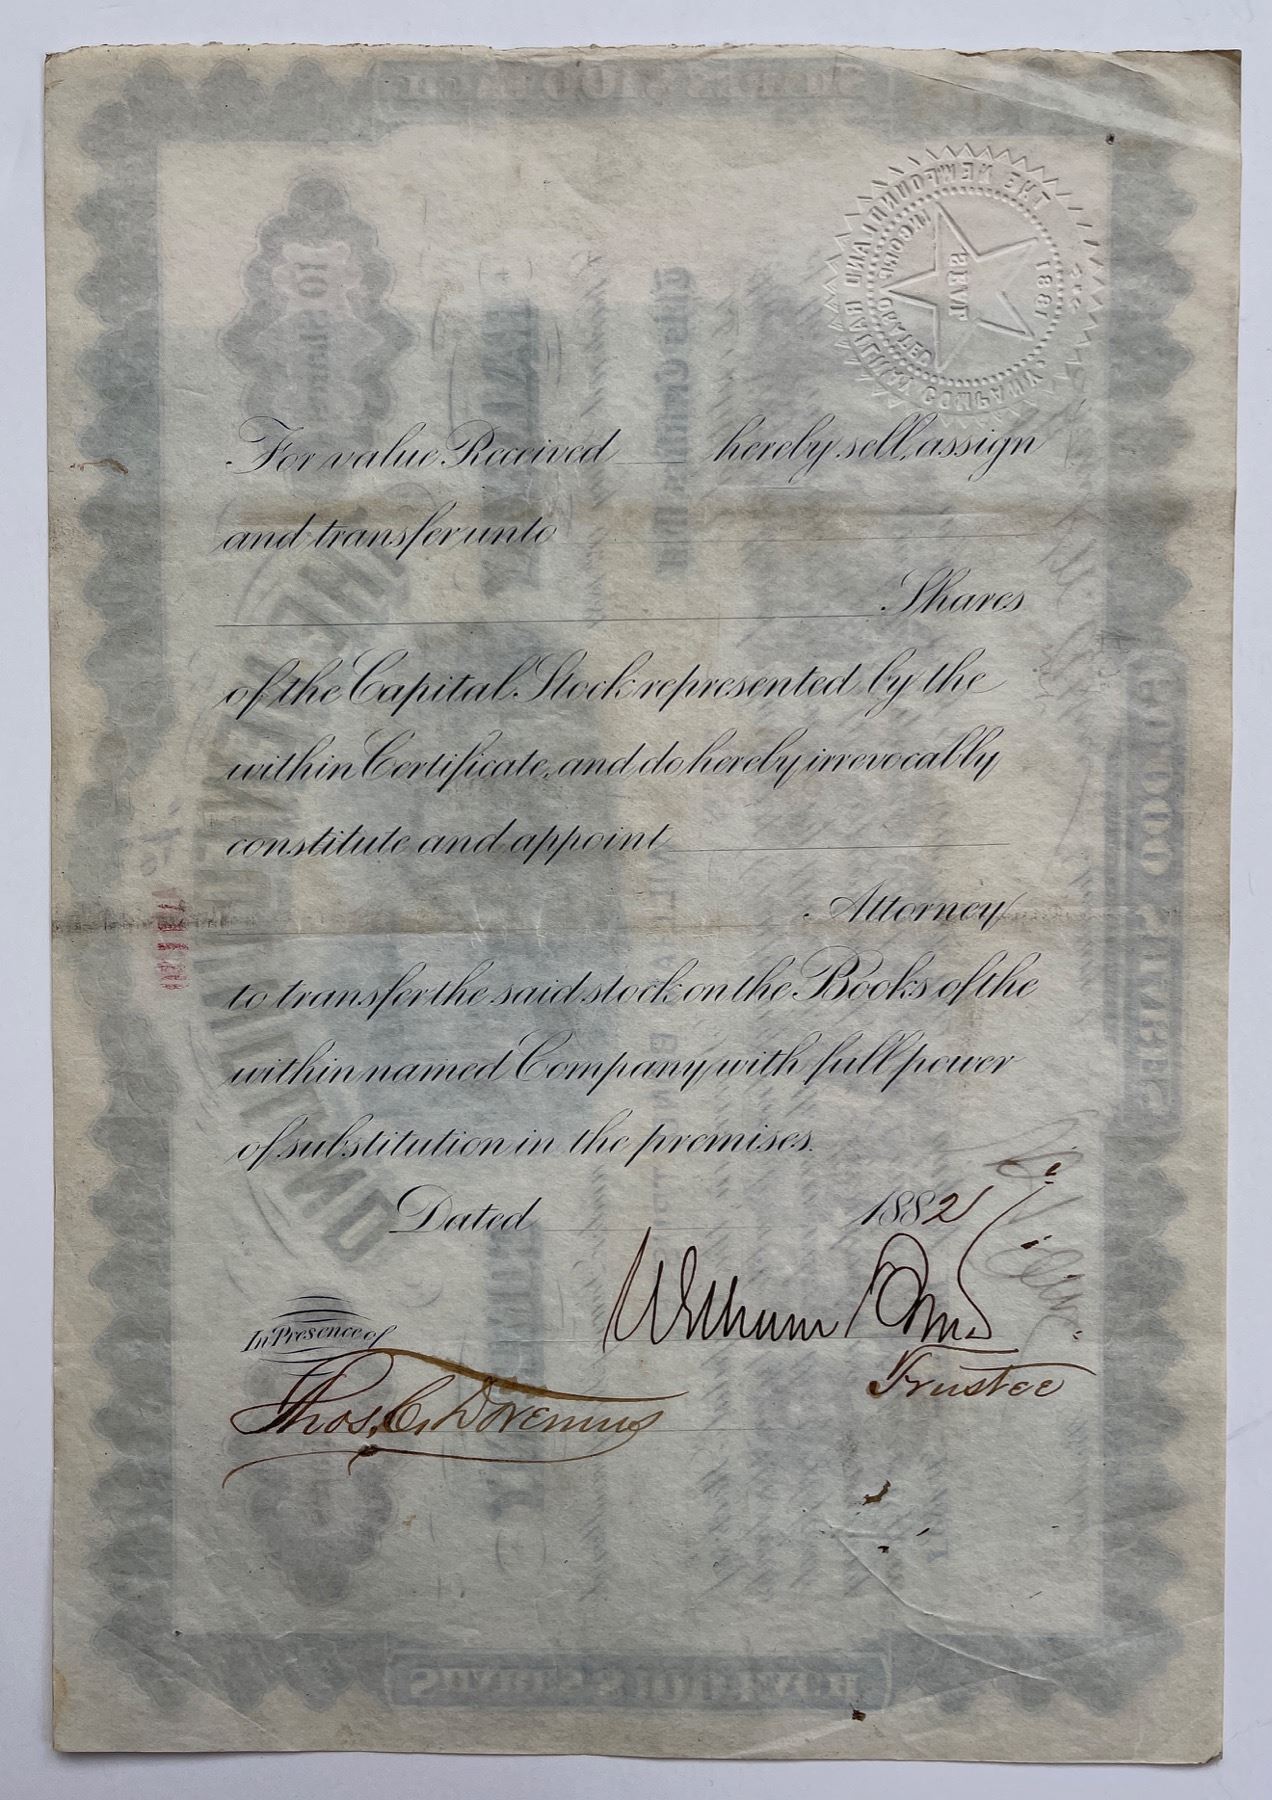 THE NEWFOUNDLAND RAILWAY COMPANY.
INCORPORATED 1881
SEAL
For value Received hereby sell, assign
and transfer unto
Shares
of the Capital Stock represented by the
within Certificate, and do hereby irrevocably
constitute and appoint
Attorney
to transfer the said stock on the Books of the
within named Company with full power
of substitution in the premises.
Dated 1882
William Bond
Trustee
In Presence of
Thos. C. Doremus